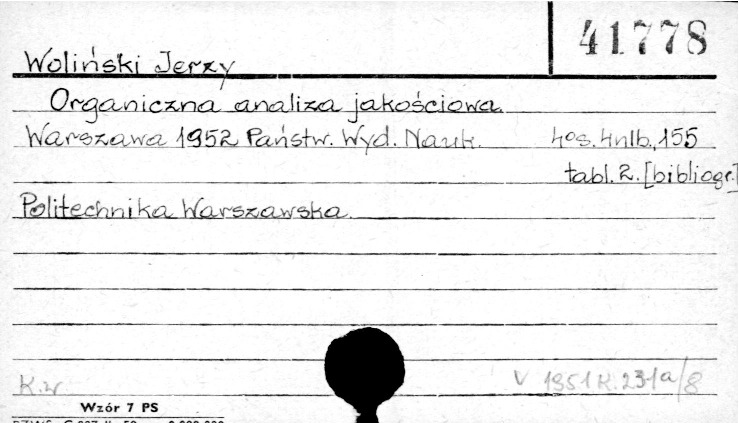 41778
Woliński Jerzy
Organiczna analiza jakościowa.
Warszawa 1952 Państw. Wyd. Nauk. 4° s. 4nlb., 155
tabl. 2. [bibliogr.]
Politechnika Warszawska.
K.w V 1951 R. 231a/8
Wzór 7 PS